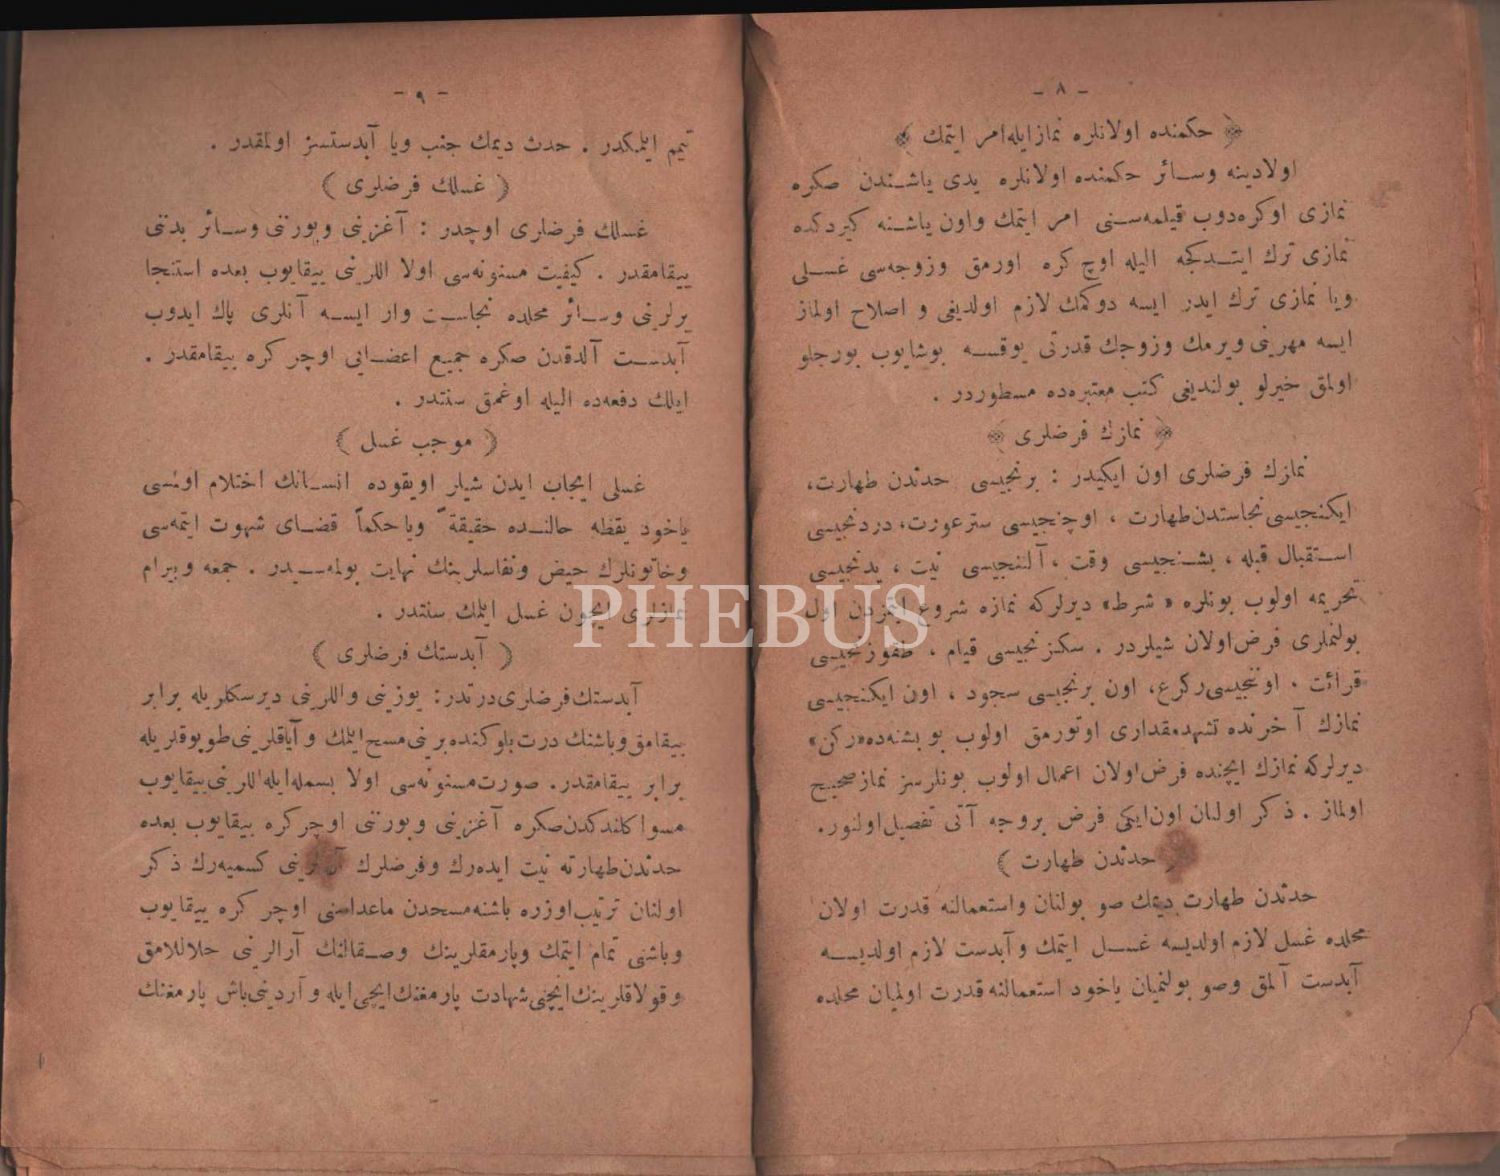 - ٨ -
﴿ حكمنده اولانلره نماز ايله امر ايتمك ﴾
اولادينه وسائر حكمنده اولانلره يدى ياشندن صكره
نمازى اوكره دوب قيلمه سنى امر ايتمك واون ياشنه كيردكده
نمازى ترك ايتدكجه اليله اوچ كره اورمق وزوجه سى غسلى
ويا نمازى ترك ايدر ايسه دوكمك لازم اولديغى و اصلاح اولماز
ايسه مهرينى ويرمك وزوجك قدرتى يوقسه بوشايوب بورجلو
اولمق خيرلو بولنديغى كتب معتبره ده مسطوردر .
﴿ نمازك فرضلرى ﴾
نمازك فرضلرى اون ايكيدر : برنجيسى حدثدن طهارت،
ايكنجيسى نجاستدن طهارت ، اوچنجيسى ستر عورت، دردنجيسى
استقبال قبله ، بشنجيسى وقت ، آلتنجيسى نيت ، يدنجيسى
تحريمه اولوب بونلره « شرط» ديرلركه نمازه شروع ايتمزدن اول
بولنملرى فرض اولان شيلردر . سكزنجيسى قيام ، طقوزنجيسى
قرائت ، اوننجيسى ركوع، اون برنجيسى سجود ، اون ايكنجيسى
نمازك آخرنده تشهد مقدارى اوتورمق اولوب بو بشنه ده «ركن»
ديرلركه نمازك ايچنده فرض اولان اعمال اولوب بونلرسز نماز صحيح
اولماز . ذكر اولنان اون ايكى فرض بروجه آتى تفصيل اولنور.
﴿ حدثدن طهارت ﴾
حدثدن طهارت ديمك صو بولنان واستعمالنه قدرت اولان
محلده غسل لازم اولديسه غسل ايتمك و آبدست لازم اولديسه
آبدست آلمق وصو بولنميان ياخود استعمالنه قدرت اولميان محلده
- ٩ -
تيمم ايلمكدر . حدث ديمك جنب ويا آبدستسز اولمقدر .
﴿ غسلك فرضلرى ﴾
غسلك فرضلرى اوچدر : آغزينى وبورننى وسائر بدننى
ييقامقدر . كيفيت مسنونه سى اولا اللرينى ييقايوب بعده استنجا
يرلرينى وسائر محلده نجاست وار ايسه آنلرى پاك ايدوب
آبدست آلدقدن صكره جميع اعضايى اوچر كره ييقامقدر .
ايلك دفعه ده اليله اوغمق سنتدر .
﴿ موجب غسل ﴾
غسلى ايجاب ايدن شيلر اويقوده انسانك احتلام اولمسى
ياخود يقظه حالنده حقيقةً ويا حكماً قضاى شهوت ايتمه سى
وخاتونلرك حيض ونفاسلرينك نهايت بولمه سيدر . جمعه وبيرام
نمازلرى ايچون غسل ايلمك سنتدر .
﴿ آبدستك فرضلرى ﴾
آبدستك فرضلرى درتدر: يوزينى واللرينى ديرسكلريله برابر
ييقامق وباشنك درت بلوكنده برينى مسح ايلمك و آياقلرينى طوپوقلريله
برابر ييقامقدر. صورت مسنونه سى اولا بسمله ايله اللرينى ييقايوب
مسواكلندكدن صكره آغزينى وبورننى اوچر كره ييقايوب بعده
حدثدن طهارته نيت ايده رك وفرضلرك آرالرينى كسميه رك ذكر
اولنان ترتيب اوزره باشنه مسحدن ماعداسنى اوچر كره ييقايوب
وباشنى تمام ايتمك وپارمقلرينك وصقالنك آرالرينى حلاللامق
وقولاقلرينك ايچنى شهادت پارمغنك ايچى ايله و آردينى باش پارمغنك
PHEBUS